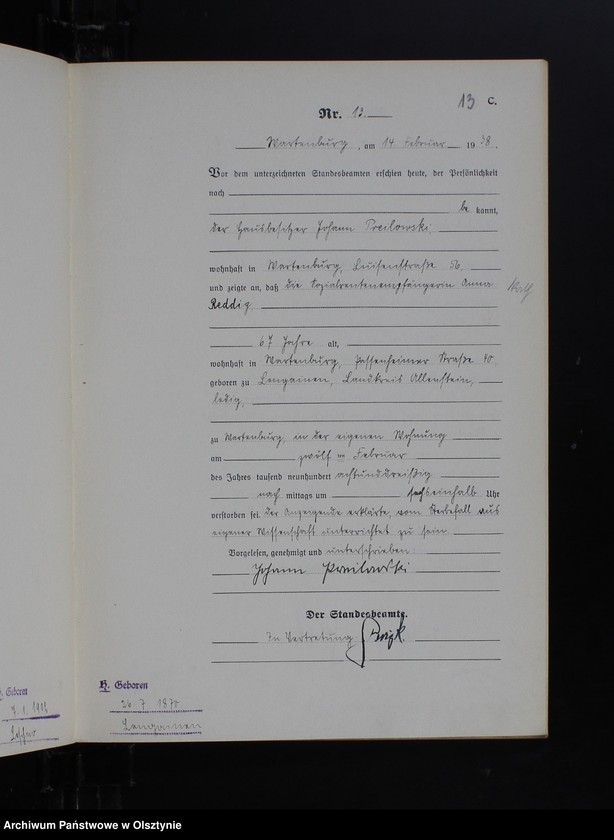 13 C.
Nr. 13.
Wartenburg, am 14 Februar 1938.
Vor dem unterzeichneten Standesbeamten erschien heute, der Persönlichkeit
nach
be kannt,
der Hausbesitzer Johann Preilowski,
wohnhaft in Wartenburg, Luisenstraße 56,
und zeigte an, daß die Sozialrentenempfängerin Anna
Reddig
67 Jahre alt,
wohnhaft in Wartenburg, Passenheimer Straße 40,
geboren zu Lengainen, Landkreis Allenstein,
ledig,
zu Wartenburg, in der eigenen Wohnung
am zwölften Februar
des Jahres tausend neunhundert achtunddreißig
nach mittags um sechseinhalb Uhr
verstorben sei. Der Anzeigende erklärte, vom Sterbefall aus
eigener Wissenschaft unterrichtet zu sein.
Vorgelesen, genehmigt und unterschrieben.
Johann Preilowski
Der Standesbeamte.
In Vertretung
H. Geboren
26 7 1870
Lengainen
Geboren
Archiwum Państwowe w Olsztynie